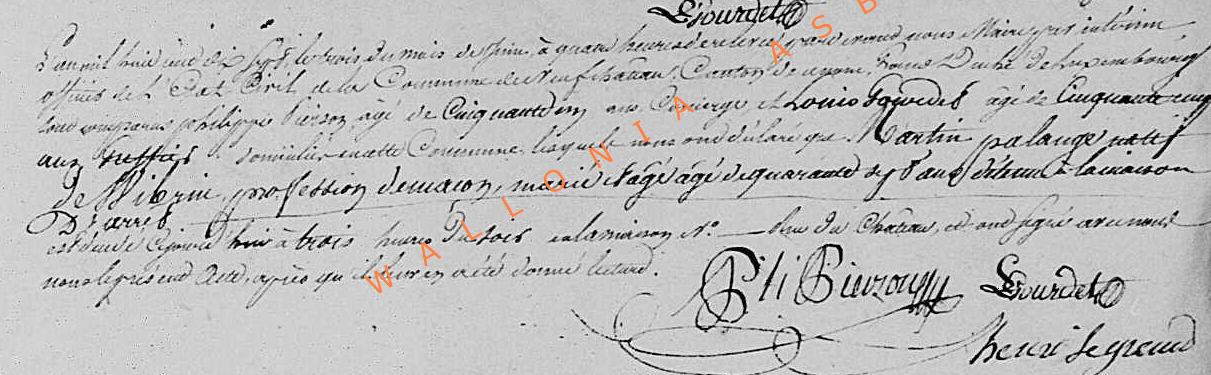 LGourdet
L'an mil huit cent dix sept, le trois du mois de juin, à quatre heures de relevée, pardevant nous Maire par intérim
officier de l'Etat Civil de la Commune de Neufchâteau, Canton de Grand Duché de Luxembourg
sont comparus philippe Pierson, âgé de Cinquante un ans, Concierge et Louis Gourdet âgé de Cinquante cinq
ans domiciliés en cette Commune, lesquels nous ont déclaré que Martin palange natif
de Wibrin, profession de macon, marié et agé âgé de quarante ans détenu à la maison
D'arrêt
est décédé hier à trois heures du soir en la maison N.° rue du Château, et ont signé avec nous
nous le présent Acte, après qu'il leur en a été donné lecture.
Phi Pierzon LGourdet
henri Legrand
WALLONIA ASB